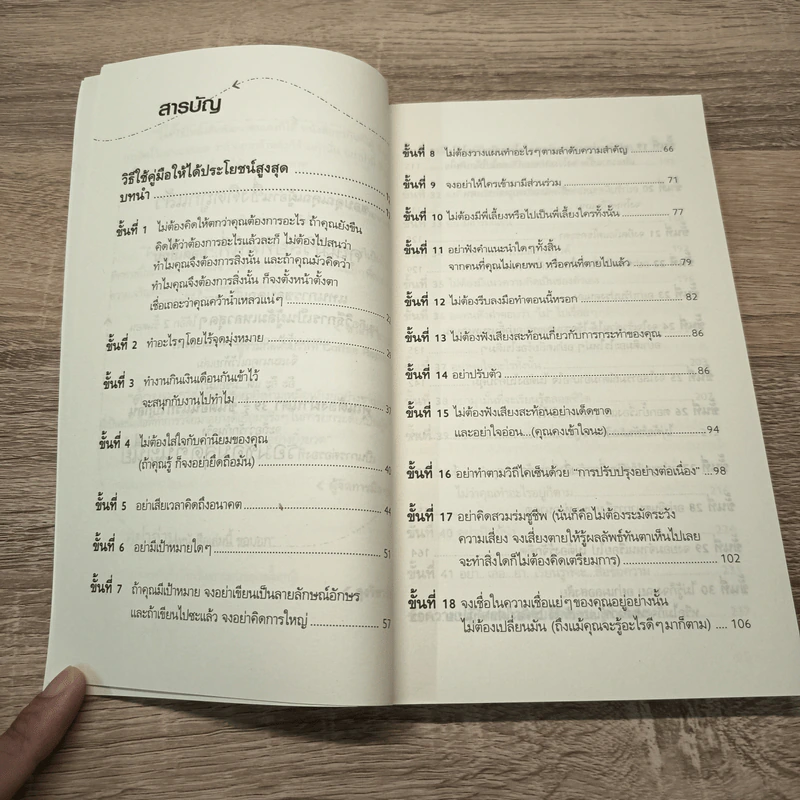 สารบัญ
วิธีใช้คู่มือให้ได้ประโยชน์สูงสุด
บทนำ
ขั้นที่ 1 ไม่ต้องคิดให้ตกว่าคุณต้องการอะไร ถ้าคุณยังขืน
คิดได้ว่าต้องการอะไรแล้วละก็ ไม่ต้องไปสนว่า
ทำไมคุณจึงต้องการสิ่งนั้น และถ้าคุณมัวคิดว่า
ทำไมคุณถึงต้องการสิ่งนั้น ก็จงตั้งหน้าตั้งตา
เชื่อเถอะว่าคุณคว้าน้ำเหลวแน่ๆ
ขั้นที่ 2 ทำอะไรๆ โดยไร้จุดมุ่งหมาย
ขั้นที่ 3 ทำงานกินเงินเดือนกันเข้าไว้
จะสนุกกับงานไปทำไม
ขั้นที่ 4 ไม่ต้องใส่ใจกับค่านิยมของคุณ
(ถ้าคุณรู้ ก็จงอย่ายึดถือมัน) 40
ขั้นที่ 5 อย่าเสียเวลาคิดถึงอนาคต 44
ขั้นที่ 6 อย่ามีเป้าหมายใดๆ 51
ขั้นที่ 7 ถ้าคุณมีเป้าหมาย จงอย่าเขียนเป็นลายลักษณ์อักษร
และถ้าเขียนไปซะแล้ว จงอย่าคิดการใหญ่ 57
ขั้นที่ 8 ไม่ต้องวางแผนทำอะไรๆ ตามลำดับความสำคัญ 66
ขั้นที่ 9 จงอย่าให้ใครเข้ามามีส่วนร่วม 71
ขั้นที่ 10 ไม่ต้องมีพี่เลี้ยงหรือไปเป็นพี่เลี้ยงใครทั้งนั้น 77
ขั้นที่ 11 อย่าฟังคำแนะนำใดๆ ทั้งสิ้น
จากคนที่คุณไม่เคยพบ หรือคนที่ตายไปแล้ว 79
ขั้นที่ 12 ไม่ต้องรีบลงมือทำตอนนี้หรอก 82
ขั้นที่ 13 ไม่ต้องฟังเสียงสะท้อนเกี่ยวกับการกระทำของคุณ 86
ขั้นที่ 14 อย่าปรับตัว 86
ขั้นที่ 15 ไม่ต้องฟังเสียงสะท้อนอย่างเด็ดขาด
และอย่าใจอ่อน...(คุณคงเข้าใจนะ) 94
ขั้นที่ 16 อย่าทำตามวิถีไคเซ็นด้วย "การปรับปรุงอย่างต่อเนื่อง" ...98
ขั้นที่ 17 อย่าคิดสวมร่มชูชีพ (นั่นก็คือไม่ต้องระมัดระวัง
ความเสี่ยง จงเสี่ยงตายให้รู้ผลลัพธ์ทันตาเห็นไปเลย
จะทำสิ่งใดก็ไม่ต้องคิดเตรียมการ) 102
ขั้นที่ 18 จงเชื่อในความเชื่อแย่ๆ ของคุณอยู่อย่างนั้น
ไม่ต้องเปลี่ยนมัน (ถึงแม้คุณจะรู้อะไรดีๆ มาก็ตาม) .... 106